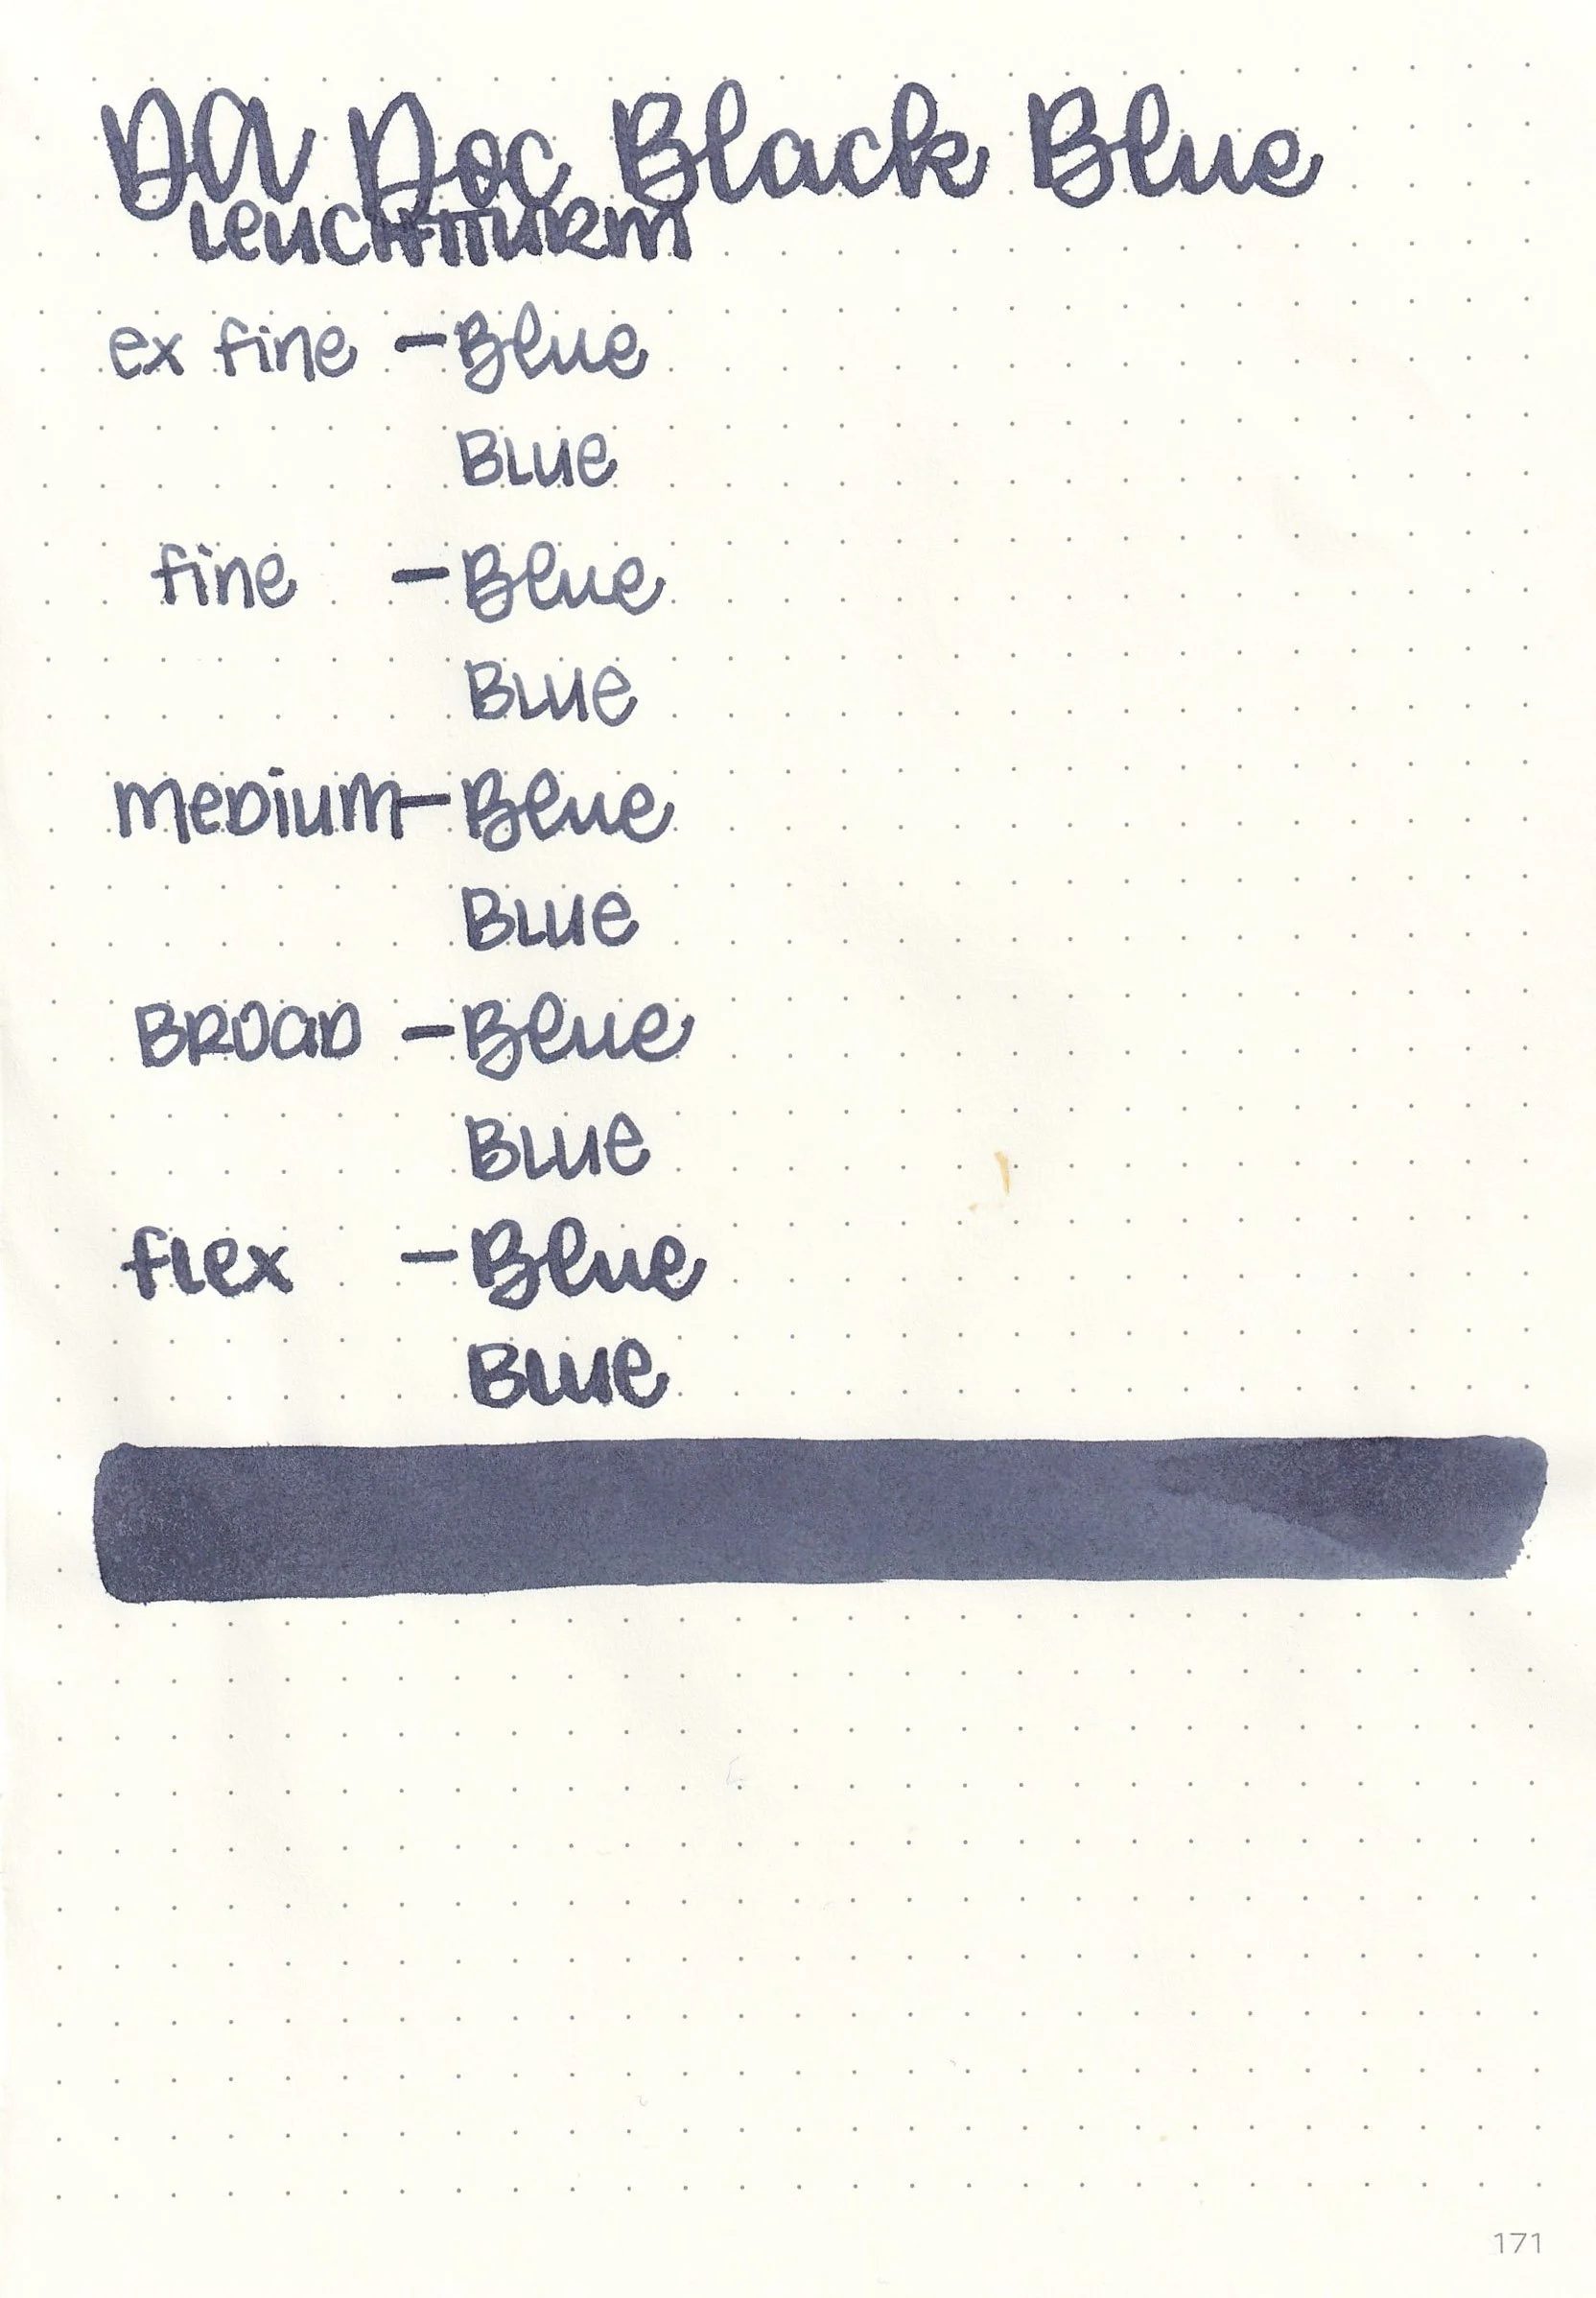 DA Doc Black Blue
LeucHtturm
ex fine - Blue
BLue
fine - Blue
BLue
meDium - Blue
BLue
BROaD - Blue
BLue
fLex - Blue
BLue
171